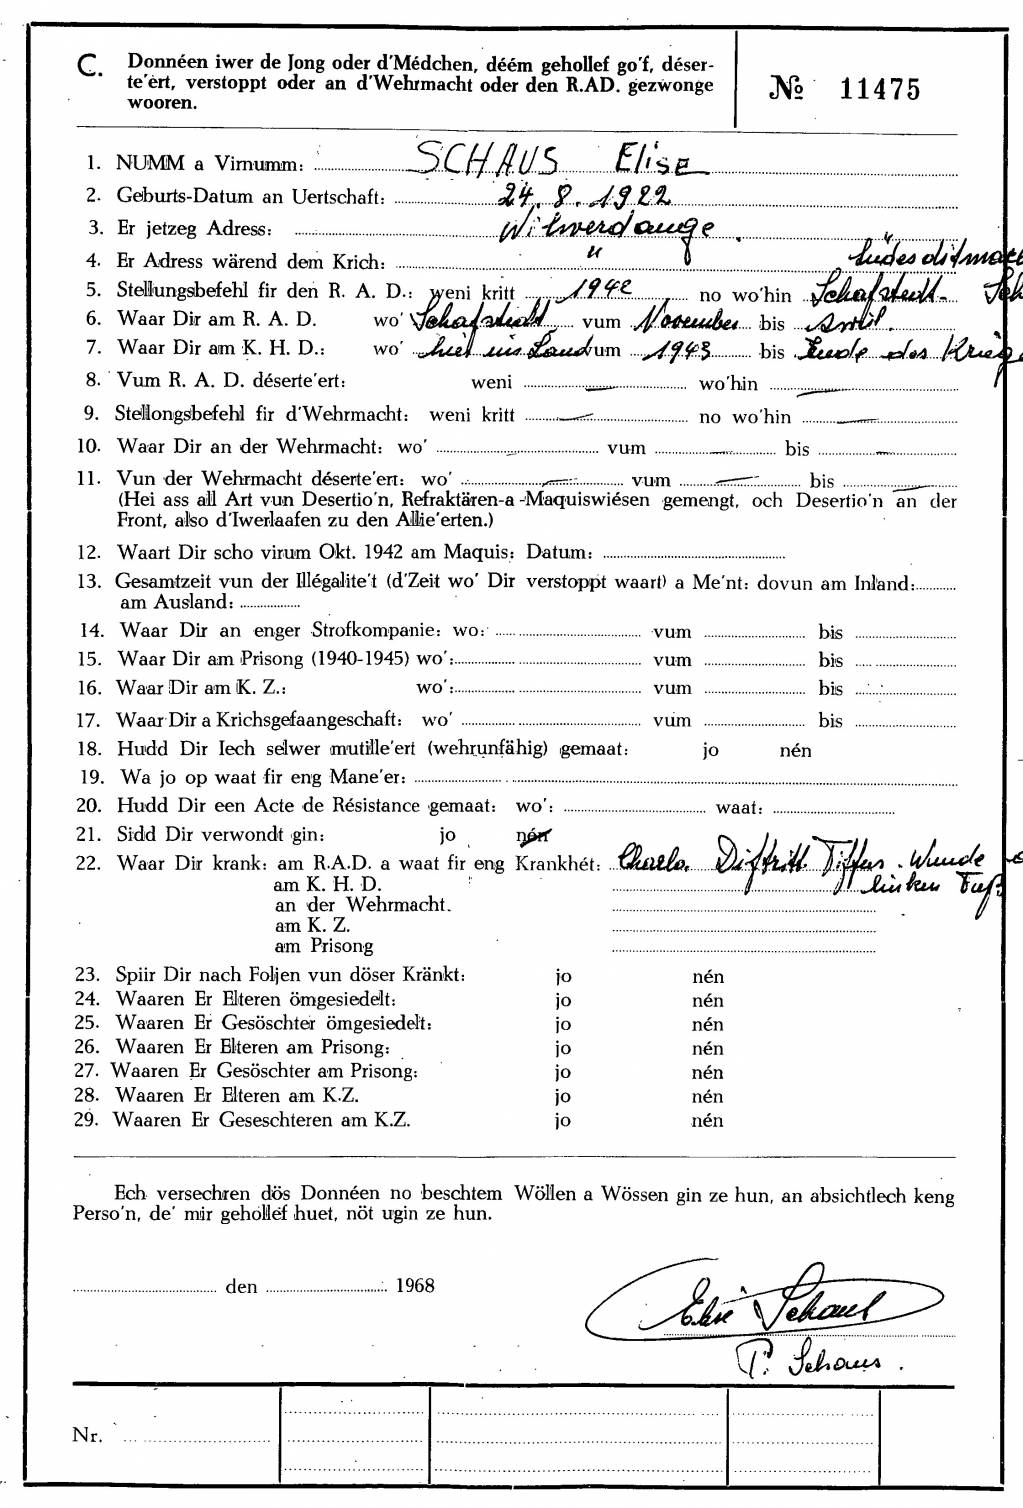 C. Donnéen iwer de Jong oder d'Médchen, déém gehollef go'f, déser-
te'ert, verstoppt oder an d'Wehrmacht oder den R.AD. gezwonge
wooren.
№ 11475
1. NUMM a Virnumm: SCHAUS Elise
2. Geburts-Datum an Uertschaft: 24.8.1922
3. Er jetzeg Adress: Wilwerdange.
4. Er Adress wärend dem Krich: "
5. Stellungsbefehl fir den R. A. D.: weni kritt 1942 no wo'hin Schafstedt-
6. Waar Dir am R. A. D. wo' Schafstedt vum November bis April.
7. Waar Dir am K. H. D.: wo' hier im Land vum 1943 bis Ende des Krieges
8. Vum R. A. D. déserte'ert: weni — wo'hin —
9. Stellongsbefehl fir d'Wehrmacht: weni kritt — no wo'hin —
10. Waar Dir an der Wehrmacht: wo' — vum — bis —
11. Vun der Wehrmacht déserte'ert: wo' — vum — bis —
(Hei ass all Art vun Desertio'n, Refraktären-a -Maquiswiésen gemengt, och Desertio'n an der
Front, also d'Iwerlaafen zu den Allie'erten.)
12. Waart Dir scho virum Okt. 1942 am Maquis: Datum:
13. Gesamtzeit vun der Illégalite't (d'Zeit wo' Dir verstoppt waart) a Me'nt: dovun am Inland:
am Ausland:
14. Waar Dir an enger Strofkompanie: wo: vum bis
15. Waar Dir am Prisong (1940-1945) wo': vum bis
16. Waar Dir am K. Z.: wo': vum bis
17. Waar Dir a Krichsgefaangeschaft: wo' vum bis
18. Hudd Dir Iech selwer mutille'ert (wehrunfähig) gemaat: jo nén
19. Wa jo op waat fir eng Mane'er:
20. Hudd Dir een Acte de Résistance gemaat: wo': waat:
21. Sidd Dir verwondt gin: jo nén
22. Waar Dir krank: am R.A.D. a waat fir eng Krankhét: Diftritt. Wunde
am K. H. D. linken Fuß
an der Wehrmacht.
am K. Z.
am Prisong
23. Spiir Dir nach Foljen vun döser Kränkt: jo nén
24. Waaren Er Elteren ömgesiedelt: jo nén
25. Waaren Er Gesöschter ömgesiedelt: jo nén
26. Waaren Er Elteren am Prisong: jo nén
27. Waaren Er Gesöschter am Prisong: jo nén
28. Waaren Er Elteren am K.Z. jo nén
29. Waaren Er Geseschteren am K.Z. jo nén
Ech versechren dös Donnéen no beschtem Wöllen a Wössen gin ze hun, an absichtlech keng
Perso'n, de' mir gehollef huet, nöt ugin ze hun.
den 1968
Elise Schaus
P. Schaus.
Nr.